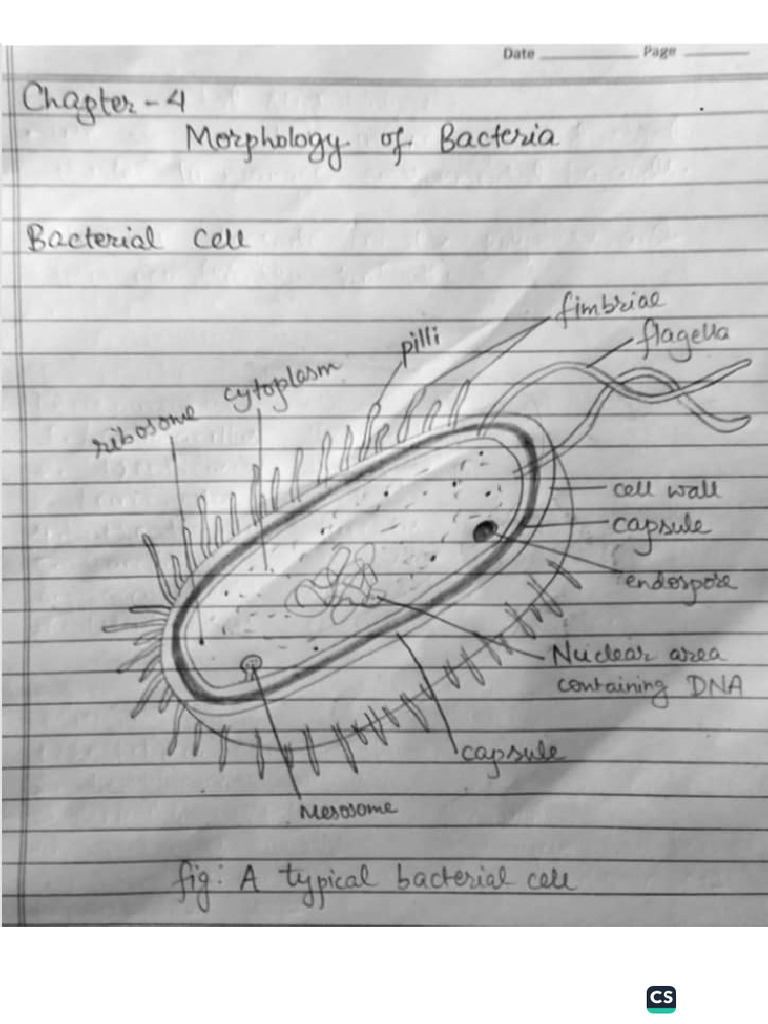 Date Page
Chapter - 4
Morphology of Bacteria
Bacterial cell
fimbriae
pilli
flagella
cytoplasm
ribosome
cell wall
capsule
endospore
Nuclear area
containing DNA
capsule
Mesosome
fig: A typical bacterial cell
CS